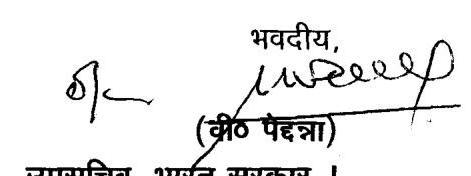 भवदीय,
(वी० पेद्दन्ना)
उपसचिव, भारत सरकार ।